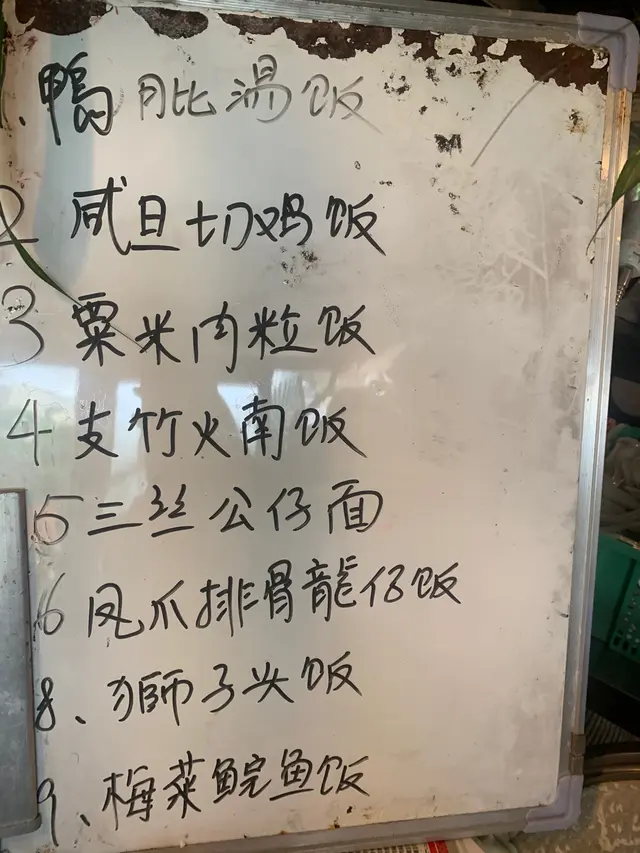 1.鴨髀湯饭
2 咸旦切鸡饭
3 粟米肉粒饭
4 支竹火南饭
5 三丝公仔面
6 凤爪排骨龍仔饭
8、獅子头饭
9、梅菜鲩鱼饭